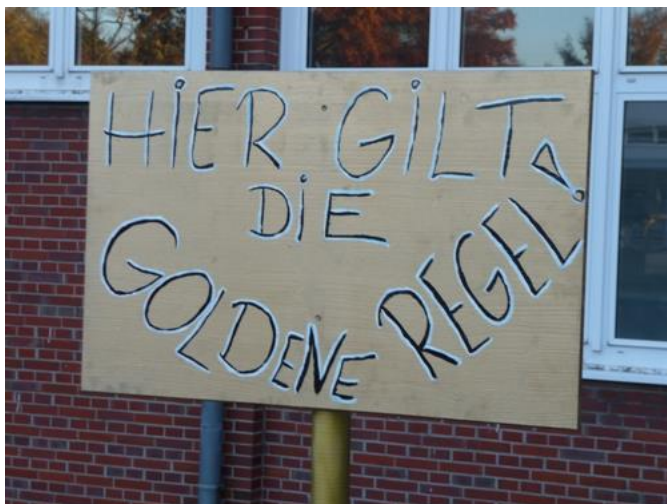 HiER GiLT
DiE
GOLDENE REGEL!